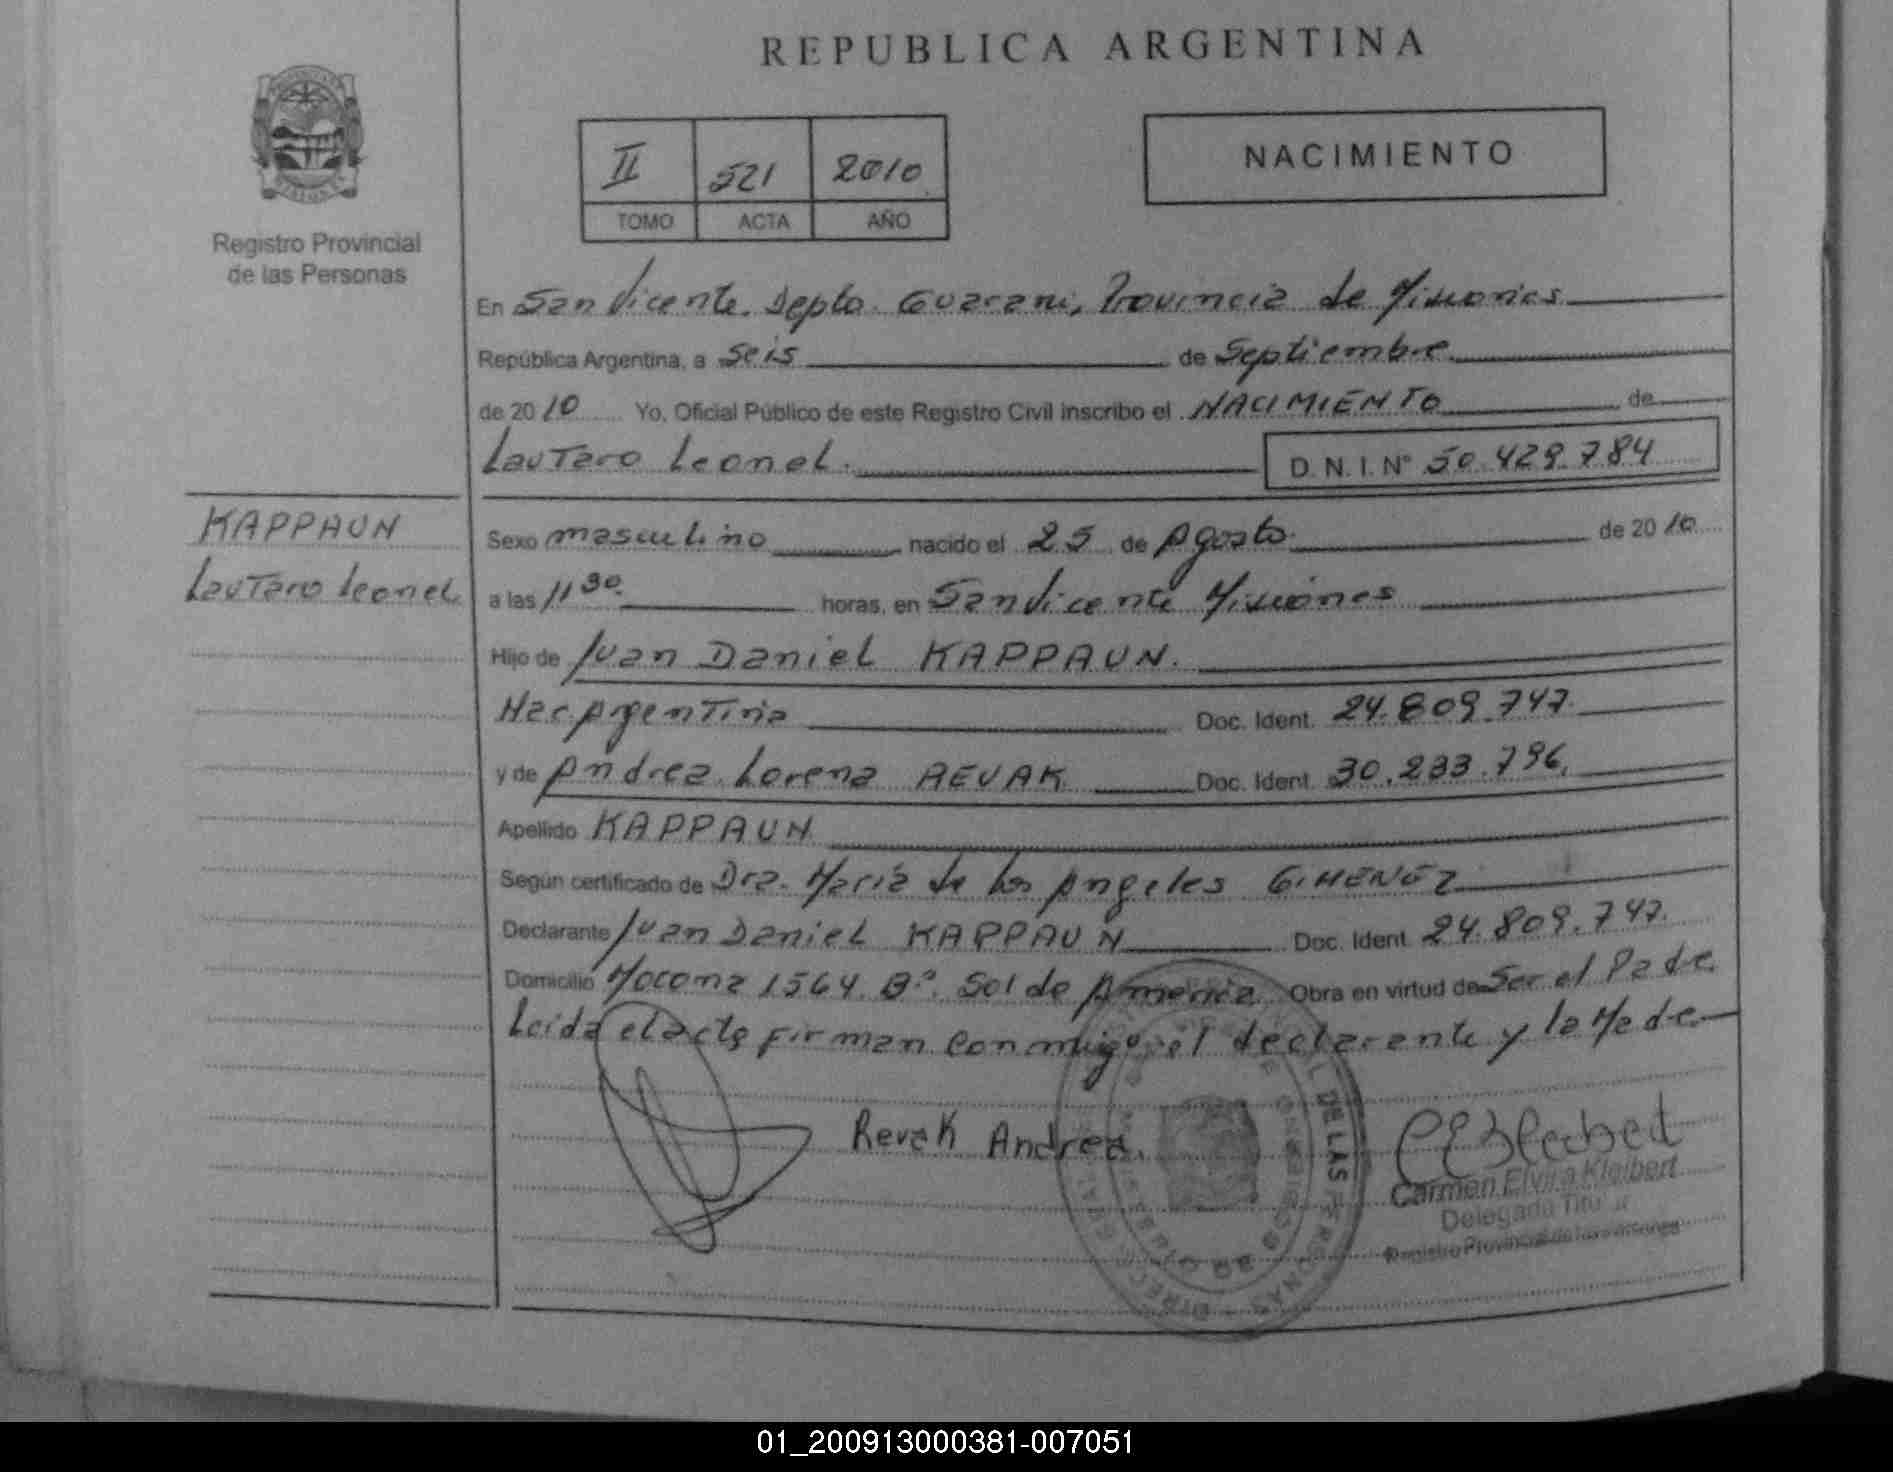 REPUBLICA ARGENTINA
II 521 2010
TOMO ACTA AÑO
NACIMIENTO
Registro Provincial
de las Personas
En San Vicente. Depto. Guarani, Provincia de Misiones
República Argentina, a Seis de Septiembre
de 2010 Yo, Oficial Público de este Registro Civil inscribo el NACIMIENTO de
Lautaro Leonel. D. N. I. Nº 50.429.784
KAPPAUN
Lautaro Leonel
Sexo masculino nacido el 25 de Agosto de 2010
a las 11 30. horas, en San Vicente Misiones
Hijo de Juan Daniel KAPPAUN.
Nac. Argentina Doc. Ident. 24.809.747.
y de Andrea Lorena REVAK Doc. Ident. 30.233.796.
Apellido KAPPAUN
Según certificado de Dra. Maria de los Angeles GIMENEZ
Declarante Juan Daniel KAPPAUN Doc. Ident. 24.809.747.
Domicilio Mocona 1564. Bº. Sol de America Obra en virtud de Ser el Padre
Leida el acta firman conmigo el declarante y la Madre.
Revak Andrea.
DE LAS PERSONAS
Carmen Elvira Kleibert
Delegada
Registro Provincial de las Personas
01_200913000381-007051